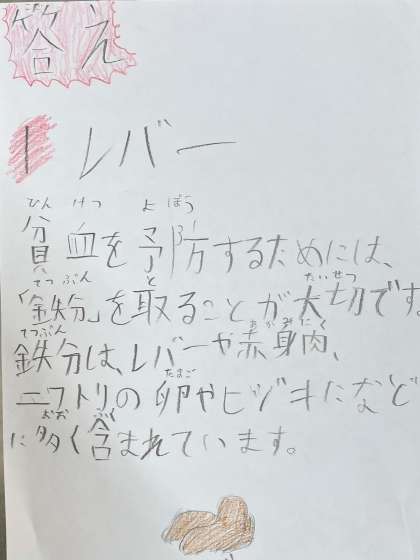 答え
1 レバー
貧血を予防するためには、
「鉄分」を取ることが大切です。
鉄分は、レバーや赤身肉、
ニワトリの卵やヒジキになど
に多く含まれています。